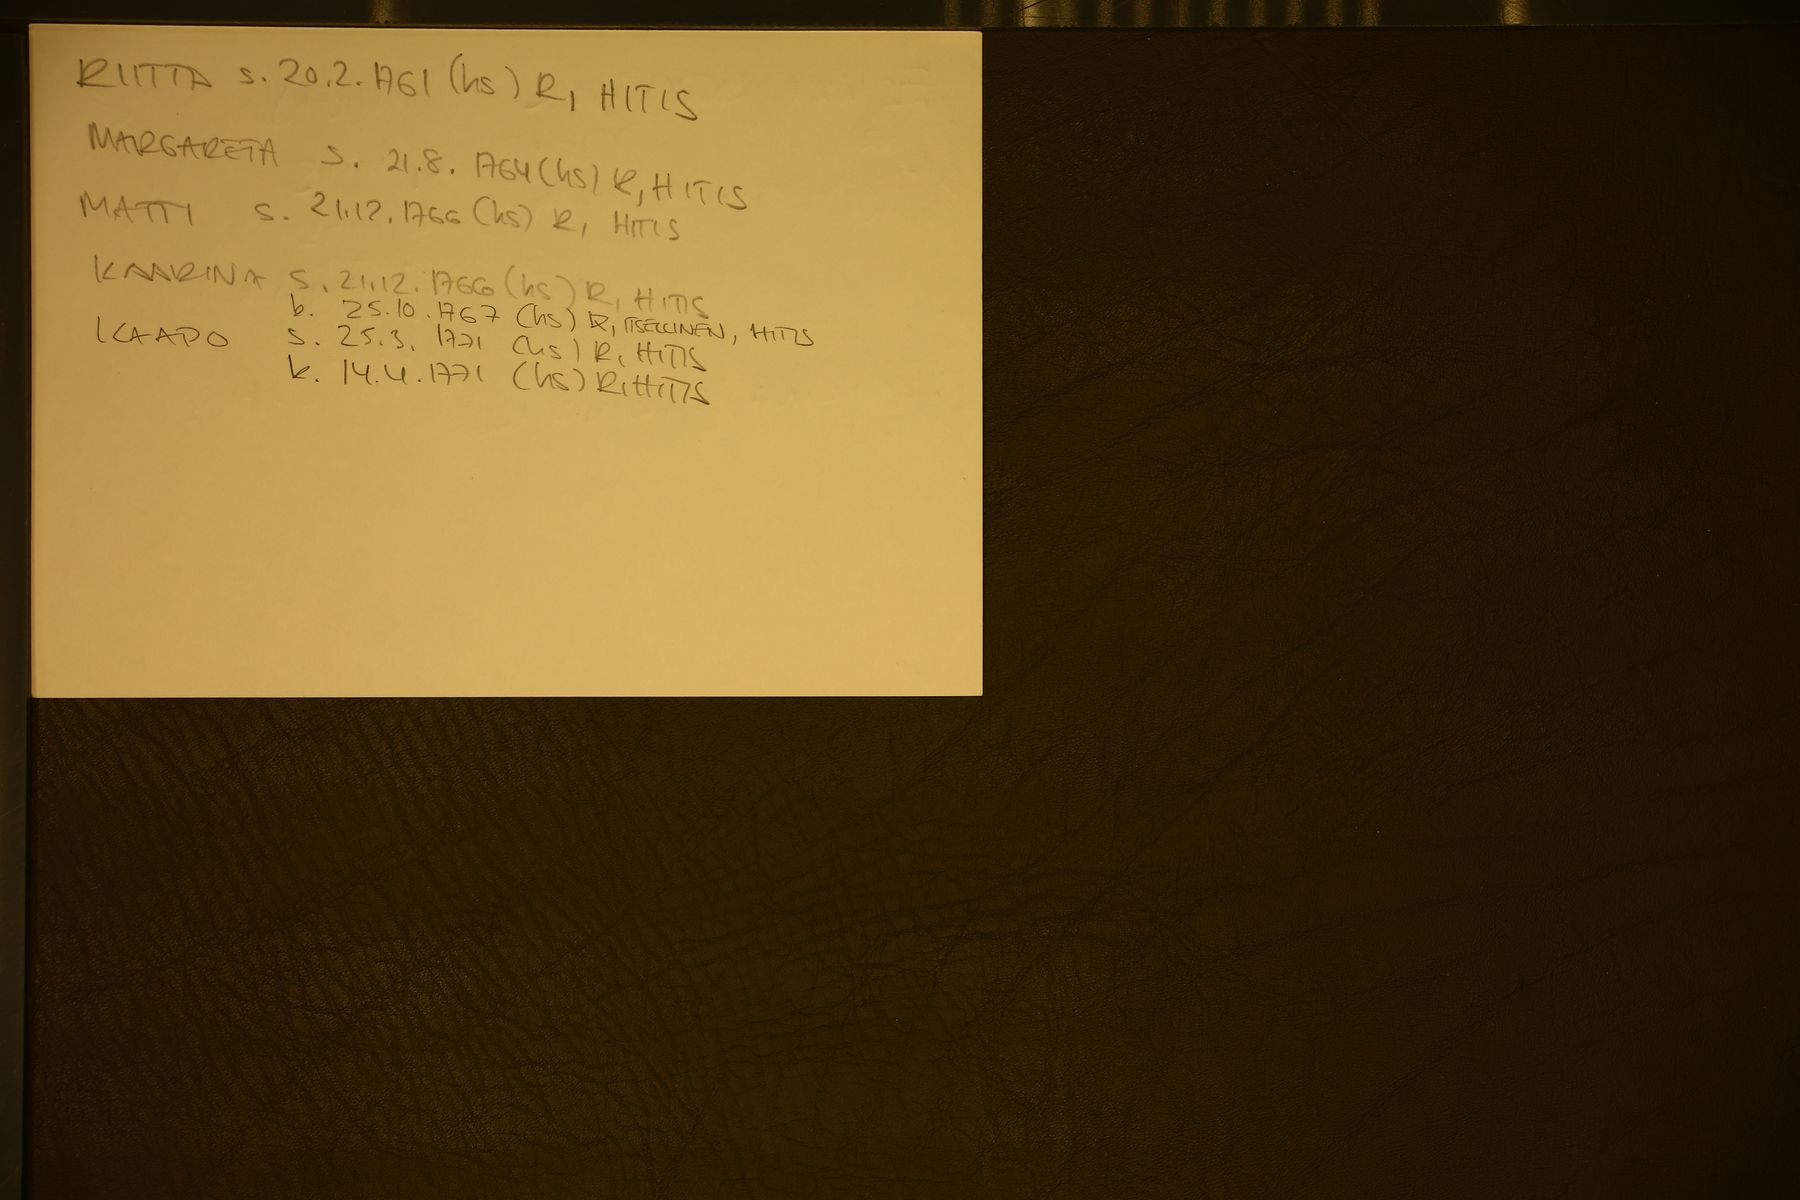 RIITTA s. 20.2.1761 (hs) R, HITIS
MARGARETA s. 21.8.1764 (hs) R, HITIS
MATTI s. 21.12.1766 (hs) R, HITIS
KAARINA s. 21.12.1766 (hs) R, HITIS
k. 25.10.1767 (hs) R, ITSELLINEN, HITIS
KAAPO s. 25.3.1771 (hs) R, HITIS
k. 14.4.1771 (hs) R, HITIS